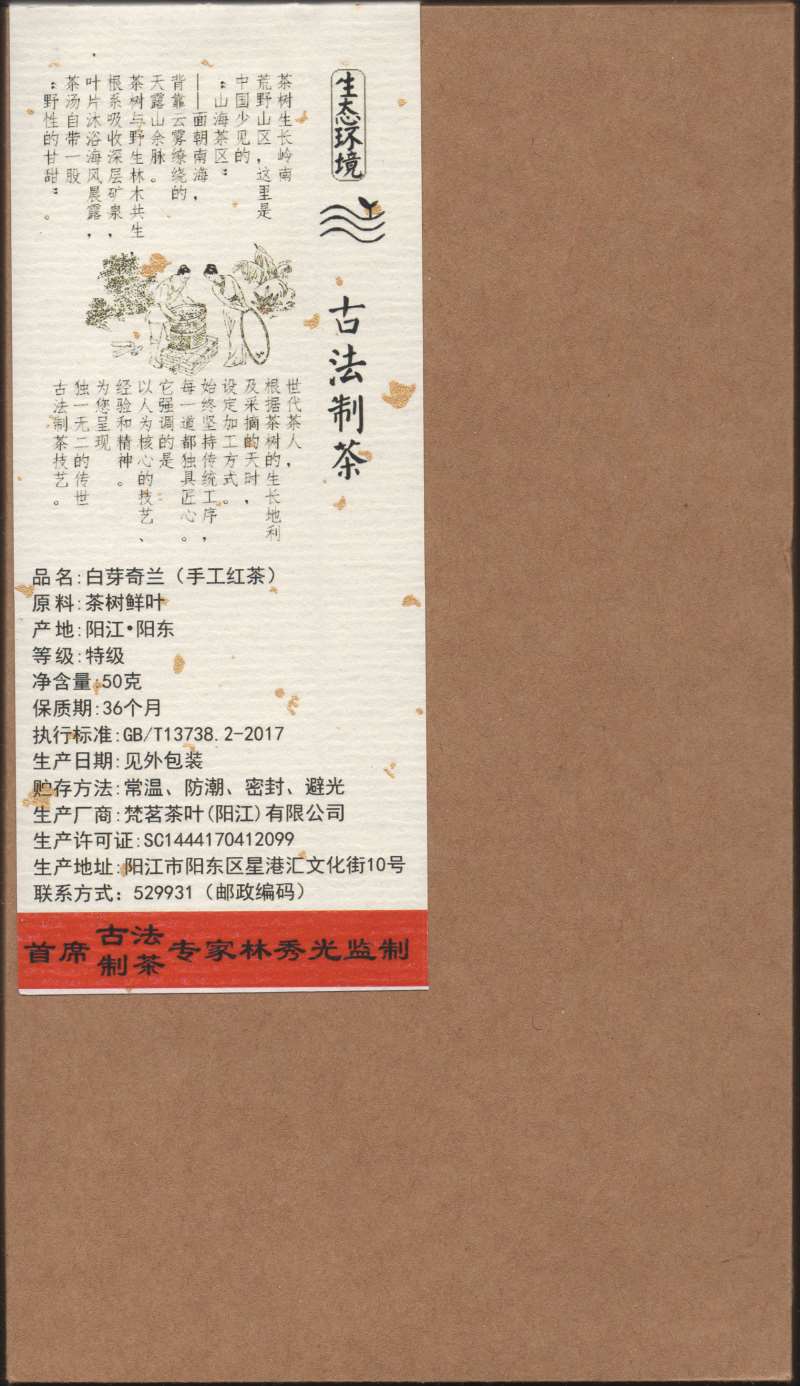 生态环境
茶树生长岭南
荒野山区,这里是
中国少见的
“山海茶区”
——面朝南海,
背靠云雾缭绕的
天露山余脉。
茶树与野生林木共生
根系吸收深层矿泉,
叶片沐浴海风晨露,
茶汤自带一股
“野性的甘甜”。
古法制茶
世代茶人,
根据茶树的生长地利
及采摘的天时,
设定加工方式。
始终坚持传统工序,
每一道都独具匠心。
它强调的是
以人为核心的技艺、
经验和精神。
为您呈现
独一无二的传世
古法制茶技艺。
品名:白芽奇兰(手工红茶)
原料:茶树鲜叶
产地:阳江•阳东
等级:特级
净含量:50克
保质期:36个月
执行标准:GB/T13738.2-2017
生产日期:见外包装
贮存方法:常温、防潮、密封、避光
生产厂商:梵茗茶叶(阳江)有限公司
生产许可证:SC1444170412099
生产地址:阳江市阳东区星港汇文化街10号
联系方式: 529931(邮政编码)
首席古法制茶专家林秀光监制